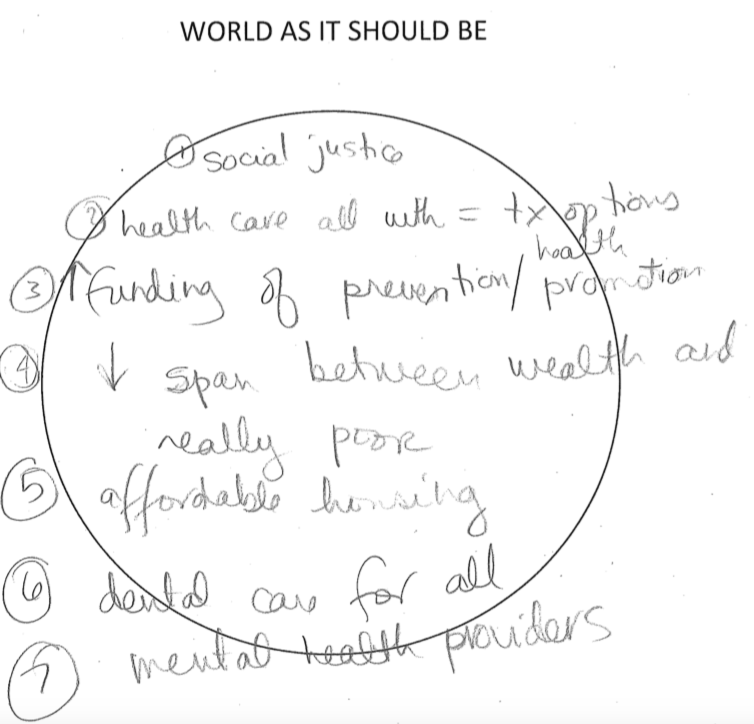 WORLD AS IT SHOULD BE
① social justice
② health care all with = tx options
③ ↑ funding of prevention/ health promotion
④ ↓ span between wealth and
really poor
⑤ affordable housing
⑥ dental care for all
⑦ mental health providers